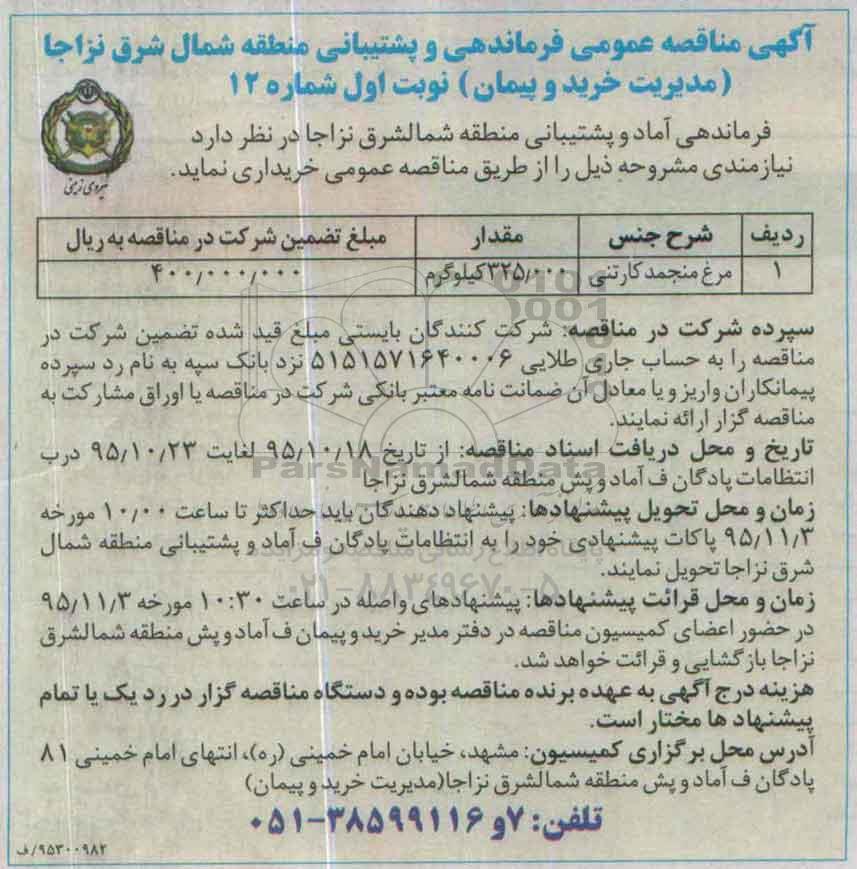 آگهی مناقصه عمومی فرماندهی و پشتیبانی منطقه شمال شرق نزاجا
(مدیریت خرید و پیمان) نوبت اول شماره ۱۲
فرماندهی آماد و پشتیبانی منطقه شمالشرق نزاجا در نظر دارد
نیازمندی مشروحه ذیل را از طریق مناقصه عمومی خریداری نماید.
نیروی زمینی
ردیف شرح جنس مقدار مبلغ تضمین شرکت در مناقصه به ریال
۱ مرغ منجمد کارتنی ۳۲۵٫۰۰۰ کیلوگرم ۴۰۰٫۰۰۰٫۰۰۰
سپرده شرکت در مناقصه: شرکت کنندگان بایستی مبلغ قید شده تضمین شرکت در
مناقصه را به حساب جاری طلایی ۵۱۵۱۵۷۱۶۴۰۰۰۶ نزد بانک سپه به نام رد سپرده
پیمانکاران واریز و یا معادل آن ضمانت نامه معتبر بانکی شرکت در مناقصه یا اوراق مشارکت به
مناقصه گزار ارائه نمایند.
تاریخ و محل دریافت اسناد مناقصه: از تاریخ ۹۵٫۱۰٫۱۸ لغایت ۹۵٫۱۰٫۲۳ درب
انتظامات پادگان ف آماد و پش منطقه شمالشرق نزاجا
ParsNamadData
زمان و محل تحویل پیشنهادها: پیشنهاد دهندگان باید حداکثر تا ساعت ۱۰٫۰۰ مورخه
۹۵٫۱۱٫۳ پاکات پیشنهادی خود را به انتظامات پادگان ف آماد و پشتیبانی منطقه شمال
شرق نزاجا تحویل نمایند.
۰۲۱-۸۸۳۴۹۶۷۰-۵
زمان و محل قرائت پیشنهادها: پیشنهادهای واصله در ساعت ۱۰:۳۰ مورخه ۹۵٫۱۱٫۳
در حضور اعضای کمیسیون مناقصه در دفتر مدیر خرید و پیمان ف آماد و پش منطقه شمالشرق
نزاجا بازگشایی و قرائت خواهد شد.
هزینه درج آگهی به عهده برنده مناقصه بوده و دستگاه مناقصه گزار در رد یک یا تمام
پیشنهاد ها مختار است.
آدرس محل برگزاری کمیسیون: مشهد، خیابان امام خمینی (ره)، انتهای امام خمینی ۸۱
پادگان ف آماد و پش منطقه شمالشرق نزاجا(مدیریت خرید و پیمان)
تلفن: ۷و ۳۸۵۹۹۱۱۶-۰۵۱
۹۵۳۰۰۹۸۲/ف